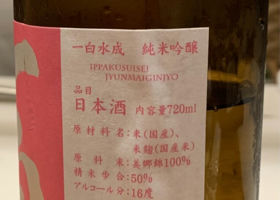 一白水成 純米吟醸
IPPAKUSUISEI
JYUNMAIGINJYO
品目
日本酒 内容量720ml
原材料名：米(国産)、
米麹(国産米)
原料米：美郷錦100%
精米歩合：50%
アルコール分：16度